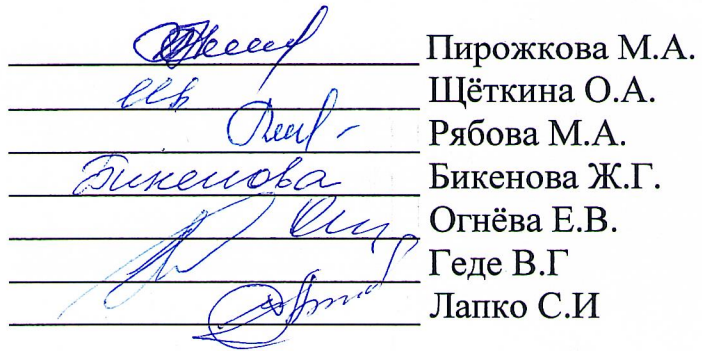 Пирожкова М.А.
Щёткина О.А.
Рябова М.А.
Бикенова Бикенова Ж.Г.
Огнёва Е.В.
Геде В.Г
Лапко С.И